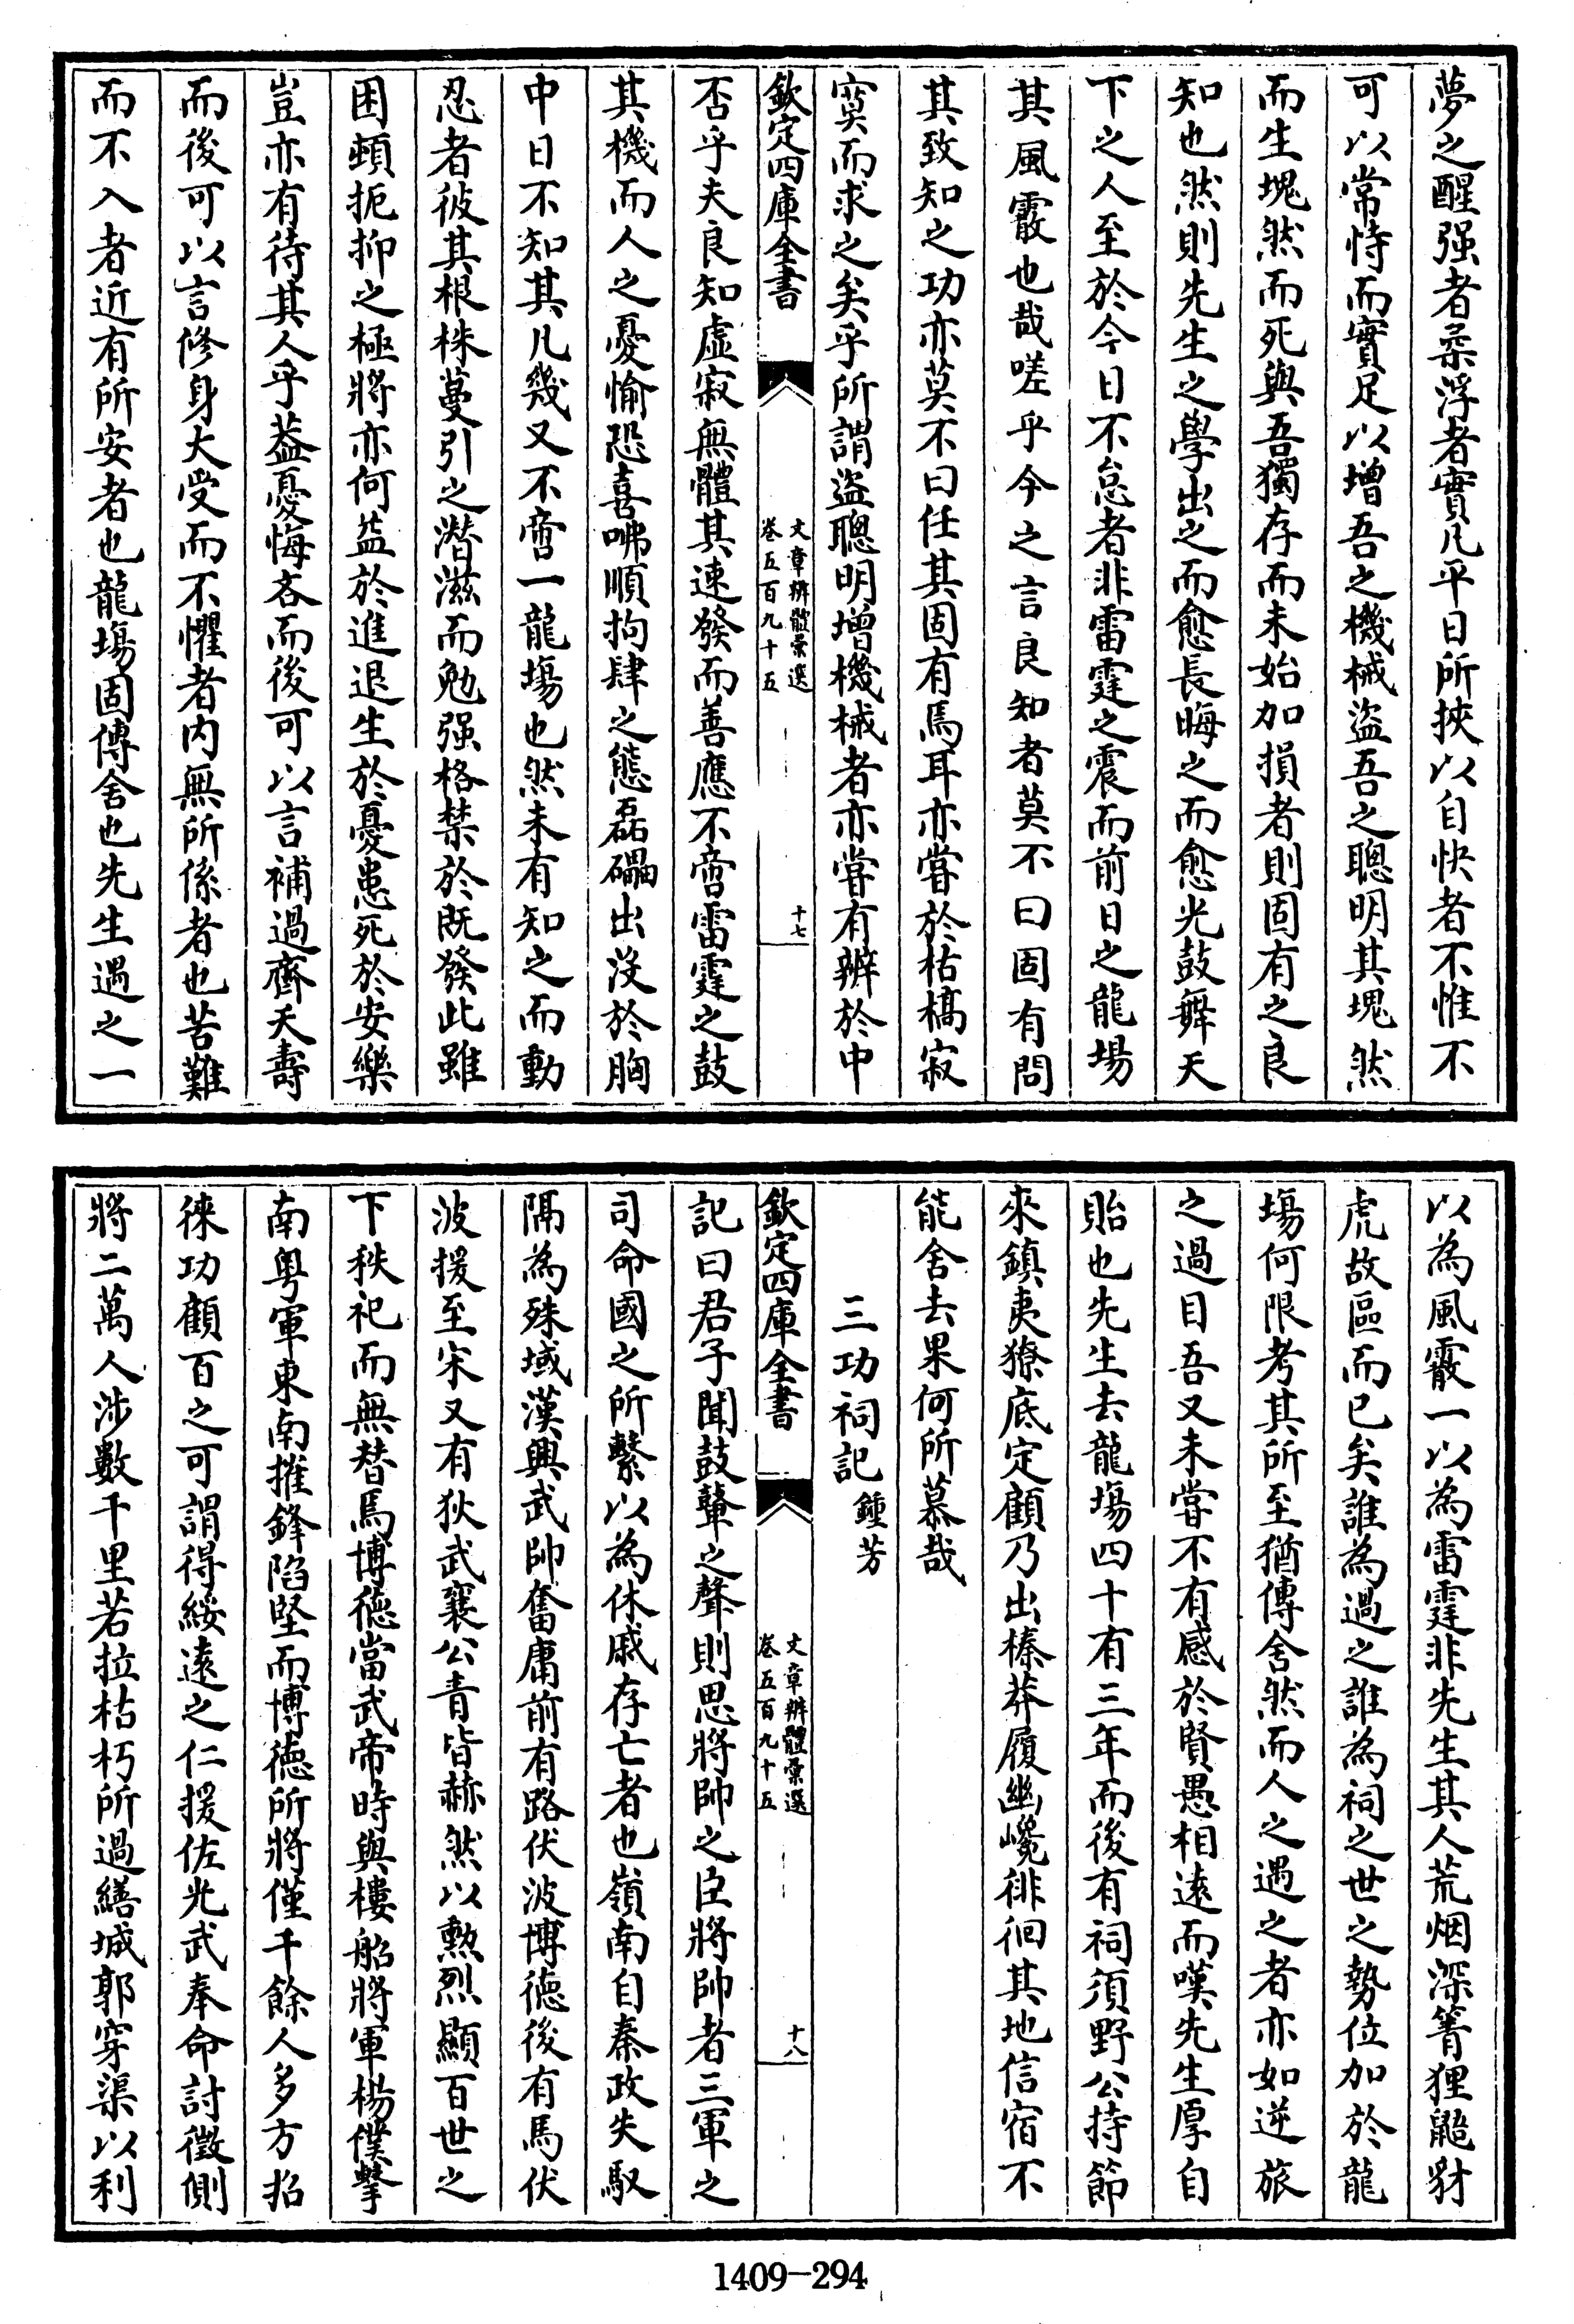 夢之醒强者柔浮者實凡平日所挾以自快者不惟不
可以常恃而實足以增吾之機械盜吾之聰明其塊然
而生塊然而死與吾獨存而未始加損者則固有之良
知也然則先生之學出之而愈長晦之而愈光鼓舞天
下之人至於今日不怠者非雷霆之震而前日之龍場
其風霰也哉嗟乎今之言良知者莫不曰固有問
其致知之功亦莫不曰任其固有焉耳亦嘗於枯槁寂
寞而求之矣乎所謂盜聰明增機械者亦嘗有辨於中
欽定四庫全書
文章辨體彙選
卷五百九十五
十七
否乎夫良知虛寂無體其速發而善應不啻雷霆之鼓
其機而人之憂愉恐喜咈順拘肆之態磊礧出沒於胸
中日不知其凡幾又不啻一龍塲也然未有知之而動
忍者彼其根株蔓引之潛滋而勉强格禁於既發此雖
困頓扼抑之極將亦何益於進退生於憂患死於安樂
豈亦有待其人乎葢憂悔吝而後可以言補過齊夭壽
而後可以言修身大受而不懼者内無所係者也苦難
而不入者近有所安者也龍塲固傳舍也先生遇之一
以為風霰一以為雷霆非先生其人荒烟深箐狸鼯豺
虎故區而已矣誰為過之誰為祠之世之勢位加於龍
塲何限考其所至猶傳舍然而人之遇之者亦如逆旅
之過目吾又未嘗不有感於賢愚相遠而嘆先生厚自
貽也先生去龍塲四十有三年而後有祠須野公持節
來鎮夷獠底定顧乃出榛莽履幽巉徘徊其地信宿不
能舍去果何所慕哉
三功祠記 鍾芳
欽定四庫全書
文章辨體彙選
卷五百九十五
十八
記曰君子聞鼓鼙之聲則思將帥之臣將帥者三軍之
司命國之所繫以為休戚存亡者也嶺南自秦政失馭
隔為殊域漢興武帥奮庸前有路伏波博德後有馬伏
波援至宋又有狄武襄公青皆赫然以勲烈顯百世之
下秩祀而無替焉博德當武帝時與樓船將軍楊僕擊
南粵軍東南摧鋒陷堅而博德所將僅千餘人多方招
徠功顧百之可謂得綏遠之仁援佐光武奉命討徵側
將二萬人涉數千里若拉枯朽所過繕城郭穿渠以利
1409-294